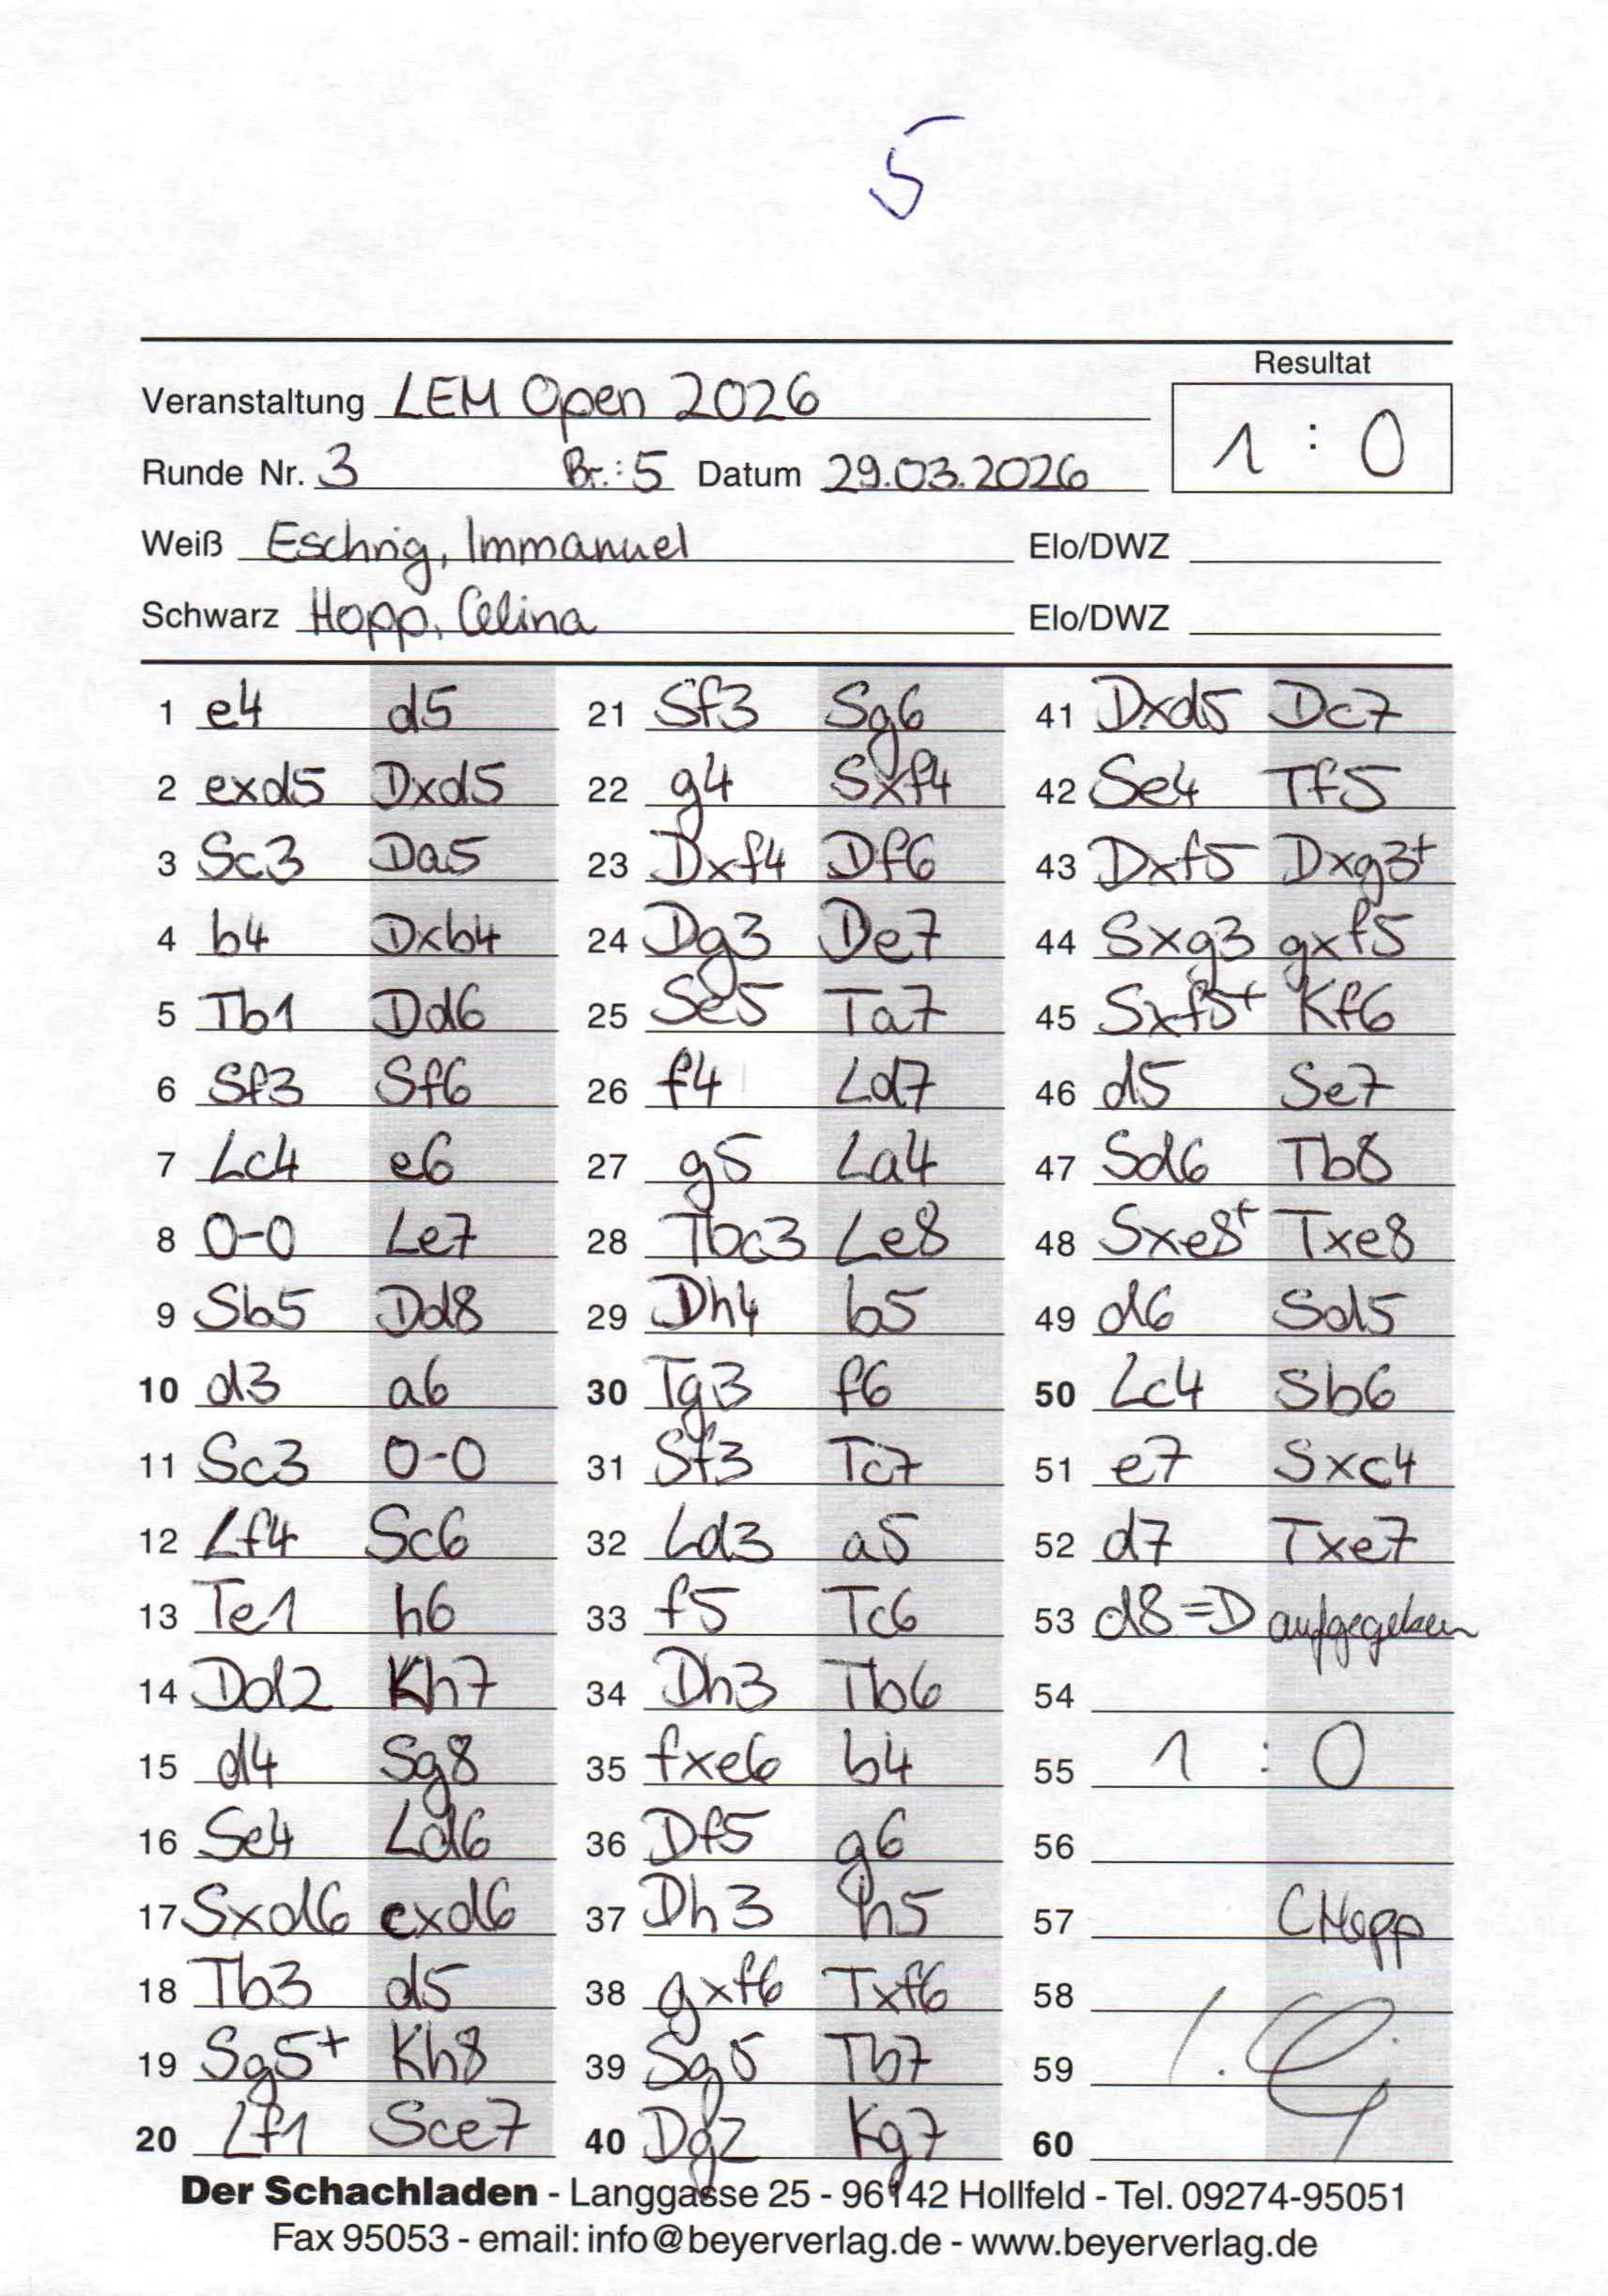 5
Resultat
Veranstaltung LEM Open 2026
1 : 0
Runde Nr. 3 Br.: 5 Datum 29.03.2026
Weiß Eschrig, Immanuel Elo/DWZ
Schwarz Hopp, Celina Elo/DWZ
1 e4 d5
2 exd5 Dxd5
3 Sc3 Da5
4 b4 Dxb4
5 Tb1 Dd6
6 Sf3 Sf6
7 Lc4 e6
8 0-0 Le7
9 Sb5 Dd8
10 d3 a6
11 Sc3 0-0
12 Lf4 Sc6
13 Te1 h6
14 Dd2 Kh7
15 d4 Sg8
16 Se4 Ld6
17 Sxd6 cxd6
18 Tb3 d5
19 Sg5+ Kh8
20 Lf1 Sce7
21 Sf3 Sg6
22 g4 Sxf4
23 Dxf4 Df6
24 Dg3 De7
25 Se5 Ta7
26 f4 Ld7
27 g5 La4
28 Tbc3 Le8
29 Dh4 b5
30 Tg3 f6
31 Sf3 Tc7
32 Ld3 a5
33 f5 Tc6
34 Dh3 Tb6
35 fxe6 b4
36 Df5 g6
37 Dh3 h5
38 gxf6 Txf6
39 Sg5 Tb7
40 Dg2 Kg7
41 Dxd5 Dc7
42 Se4 Tf5
43 Dxf5 Dxg3+
44 Sxg3 gxf5
45 Sxf5+ Kf6
46 d5 Se7
47 Sd6 Tb8
48 Sxe8+ Txe8
49 d6 Sd5
50 Lc4 Sb6
51 e7 Sxc4
52 d7 Txe7
53 d8=D aufgegeben
54
55 1 : 0
56
57 CHopp
58
59
60
Der Schachladen - Langgasse 25 - 96142 Hollfeld - Tel. 09274-95051
Fax 95053 - email: info@beyerverlag.de - www.beyerverlag.de